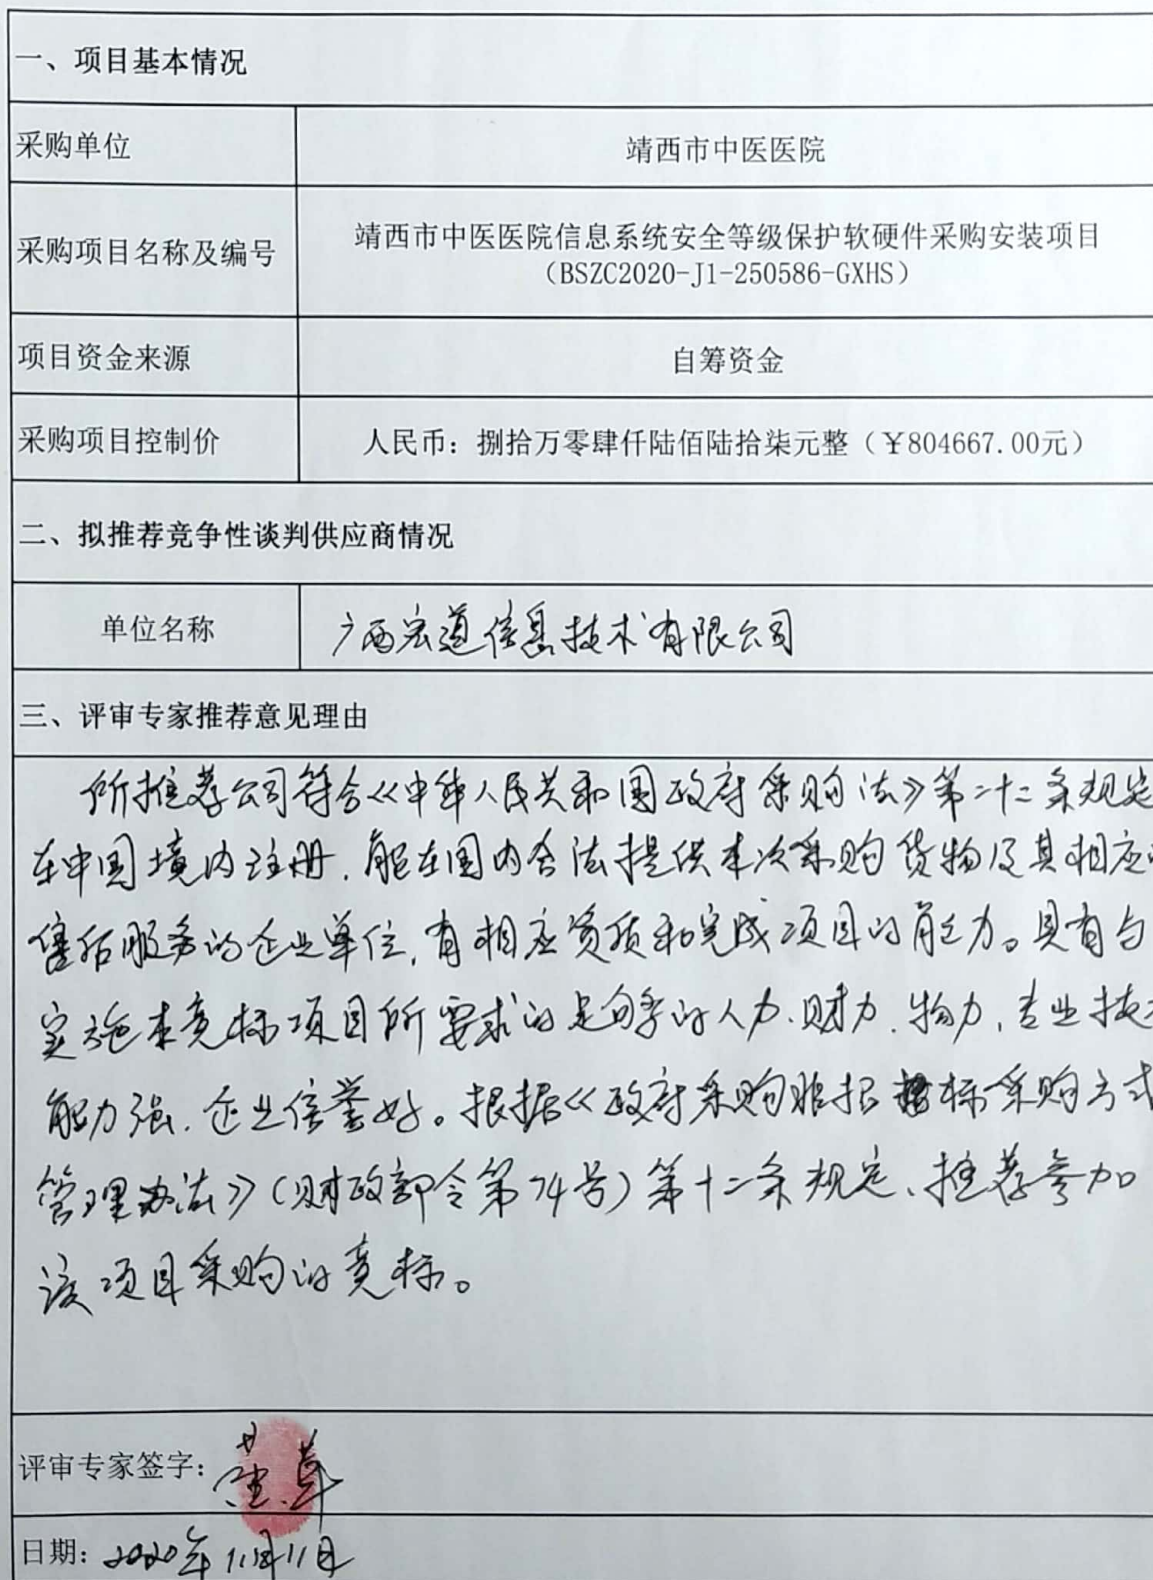 一、项目基本情况
采购单位
靖西市中医医院
采购项目名称及编号
靖西市中医医院信息系统安全等级保护软硬件采购安装项目
（BSZC2020-J1-250586-GXHS）
项目资金来源
自筹资金
采购项目控制价
人民币：捌拾万零肆仟陆佰陆拾柒元整（￥804667.00元）
二、拟推荐竞争性谈判供应商情况
单位名称
广西宏道信息技术有限公司
三、评审专家推荐意见理由
所推荐公司符合《中华人民共和国政府采购法》第二十二条规定
在中国境内注册，能在国内合法提供本次采购货物及其相应
售后服务的企业单位，有相应资质和完成项目的能力。具有与
实施本竞标项目所要求的足够的人力、财力、物力，专业技
能力强，企业信誉好。根据《政府采购非招标采购方式
管理办法》（财政部令第74号）第十二条规定、推荐参加
该项目采购的竞标。
评审专家签字：
日期：2020年11月11日